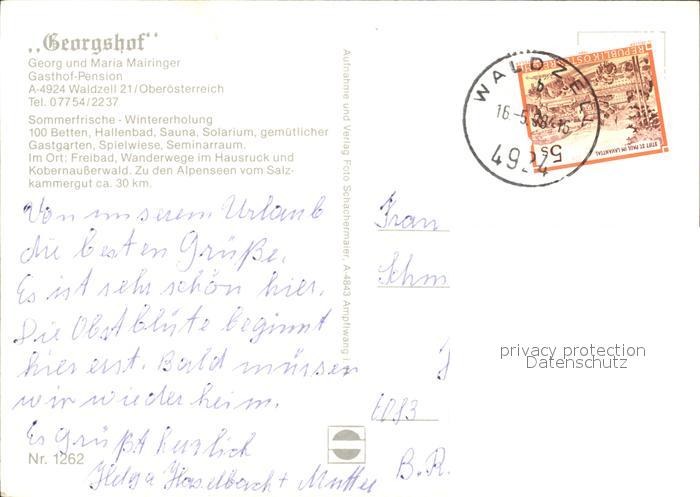 „Georgshof“
Georg und Maria Mairinger
Gasthof-Pension
A-4924 Waldzell 21/Oberösterreich
Tel. 07754/2237
Sommerfrische - Wintererholung
100 Betten, Hallenbad, Sauna, Solarium, gemütlicher
Gastgarten, Spielwiese, Seminarraum.
Im Ort: Freibad, Wanderwege im Hausruck und
Kobernaußerwald. Zu den Alpenseen vom Salz-
kammergut ca. 30 km.
Von unserem Urlaub
die besten Grüße.
Es ist sehr schön hier.
Die Obstblüte beginnt
hier erst. Bald müssen
wir wieder heim.
Es Grüßt herzlich
Helga Haselbach + Mutter
Nr. 1262
Aufnahme und Verlag Foto Schachermaier, A-4843 Ampflwang i.
WALDZELL
16-5
REPUBLIK ÖSTERREICH
5 S
STIFT ST. PAUL IM LAVANTTAL
Frau
Schm
6083
B.R.
privacy protection
Datenschutz